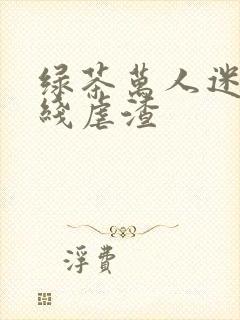 绿茶萬人迷
綫虐渣
浮費